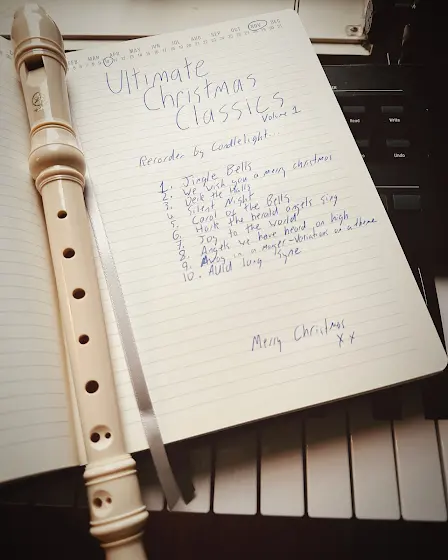 MAR APR MAY JUN JUL AUG SEP OCT NOV DEC
Ultimate
Christmas
Classics
Volume 1
Recorder by Candlelight.
1. Jingle Bells
2. We wish you a merry christmas
3. Deck the halls
4. Silent Night
5. Carol of the Bells
6. Hark the herald angels sing
7. Joy to the world
8. Angels we have heard on high
9. Away in a manger - Variations on a theme
10. Auld Lang Syne
Merry Christmas
x x
Read
Write
Undo